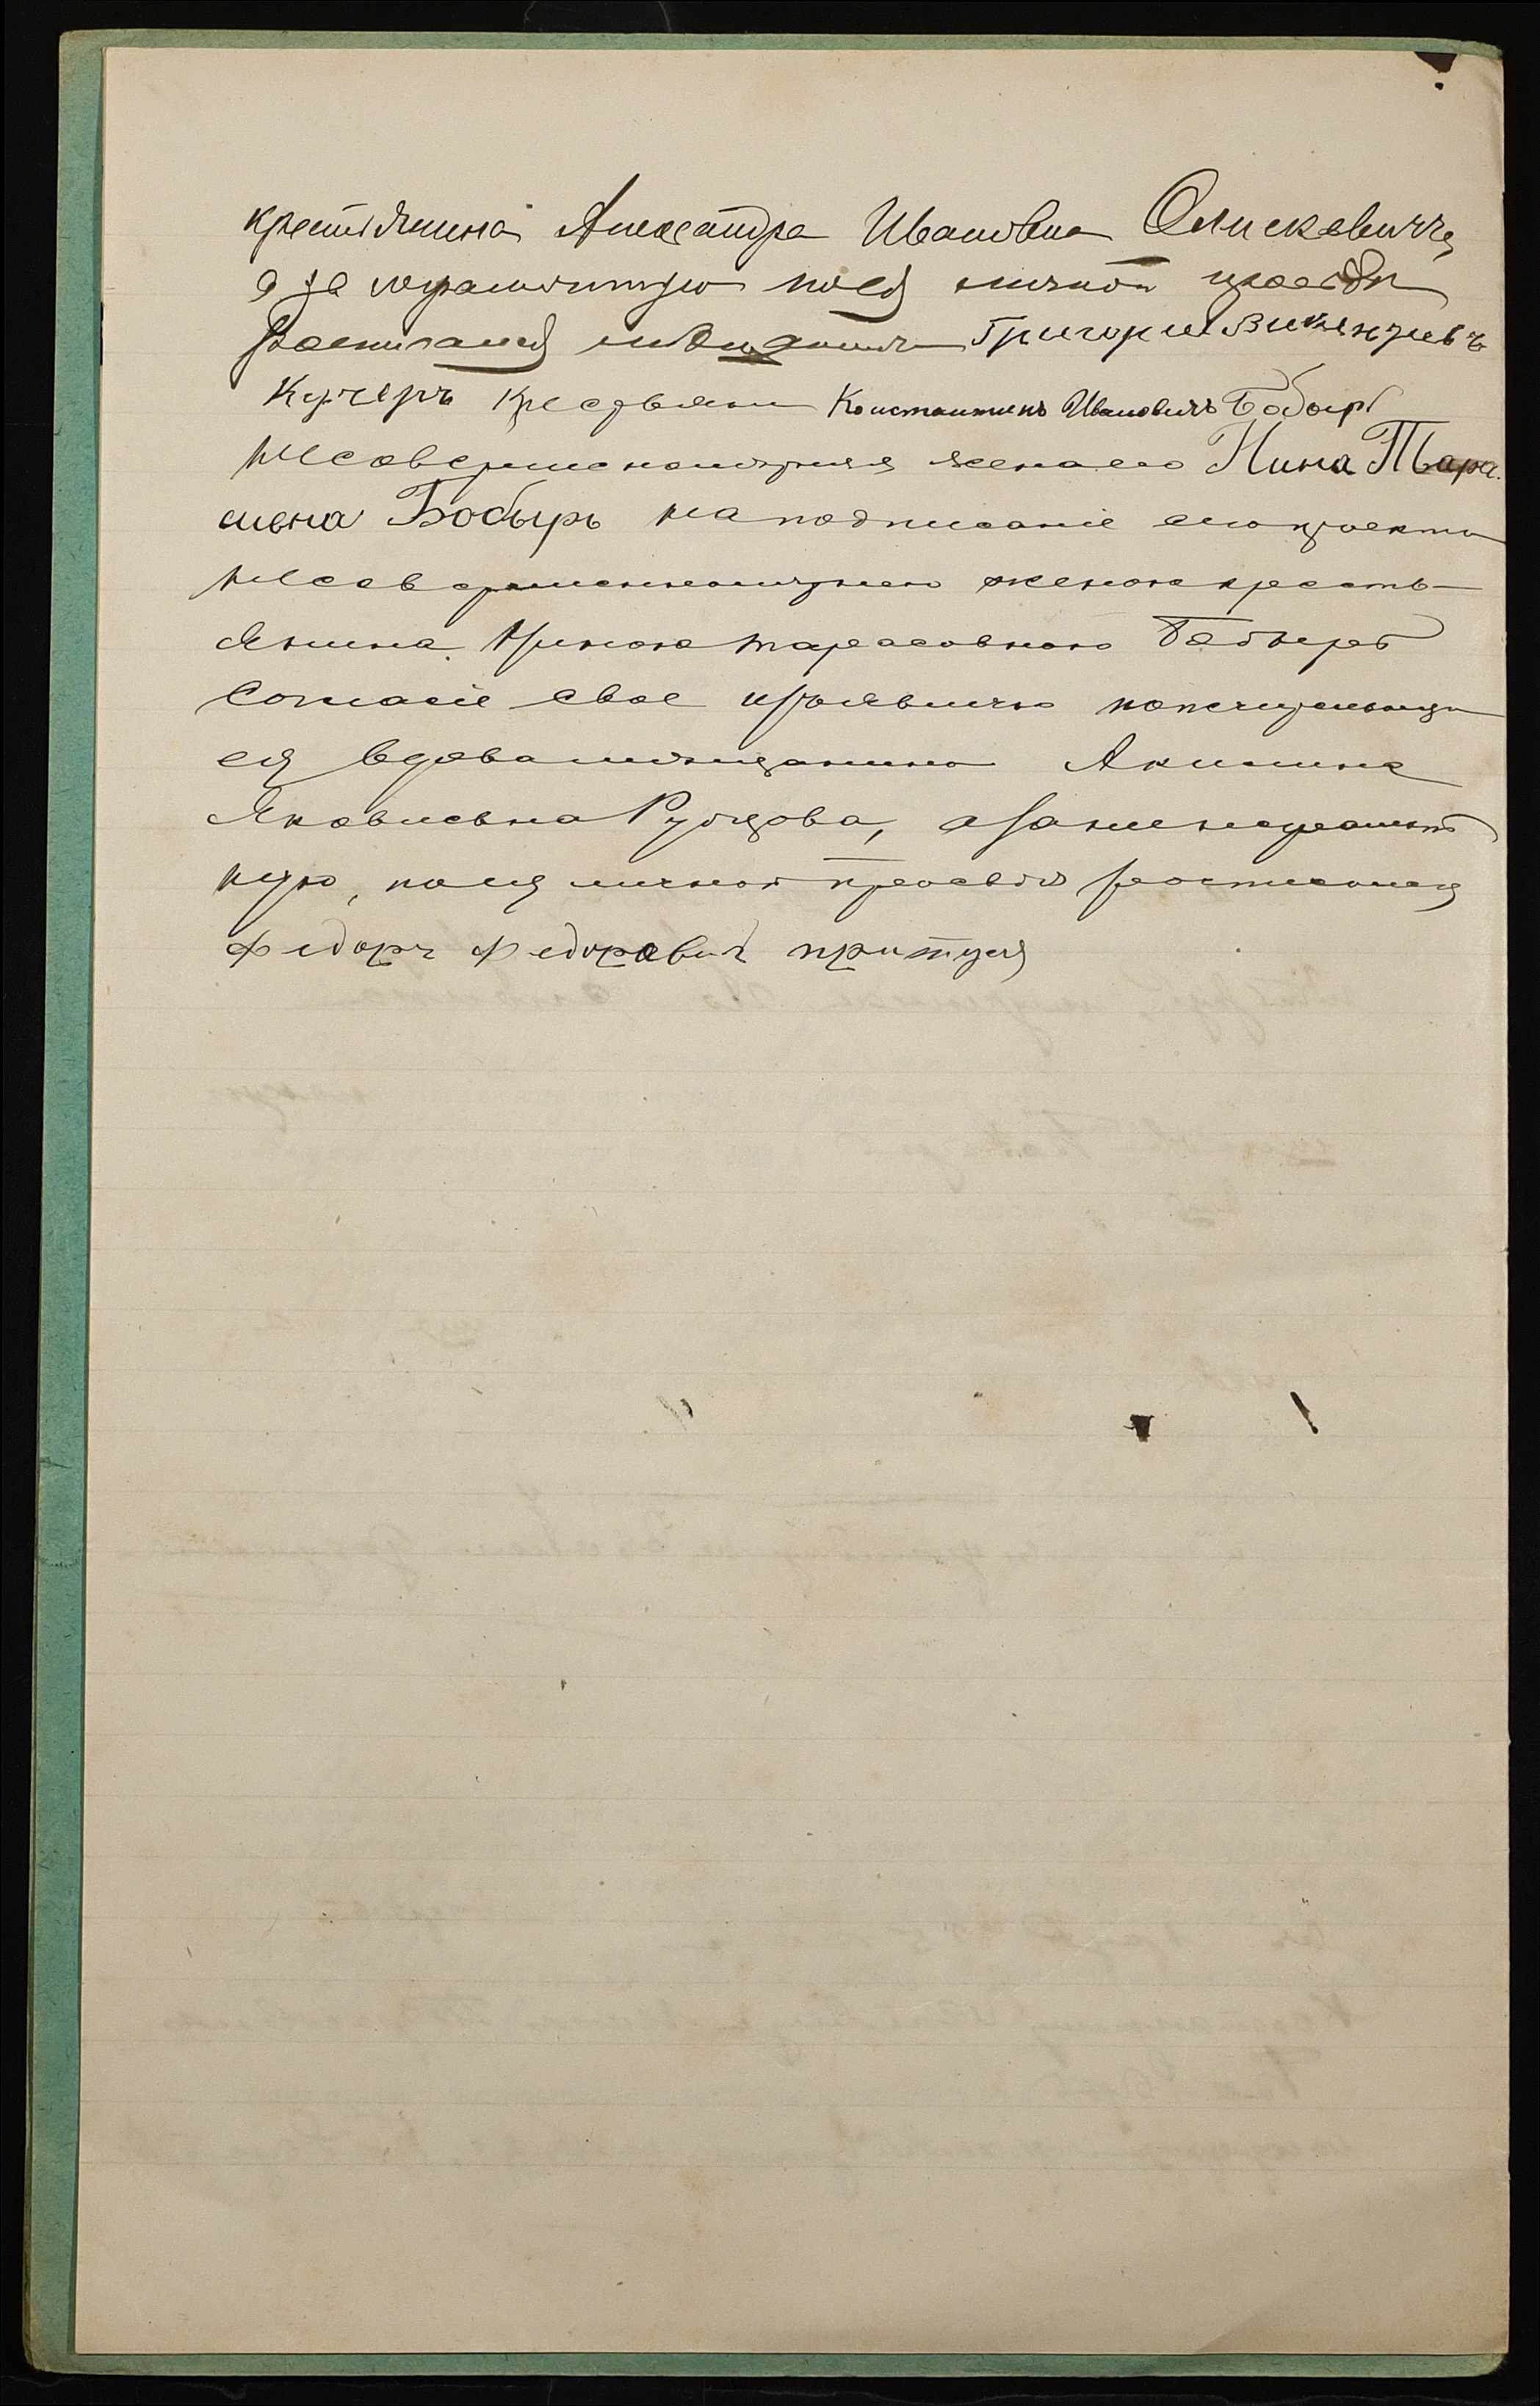 крестьянина Александра Ивановна Олискевичъ,
а за неграмотную по ея личной просьбѣ
росписался мѣщанинъ Григорий Викентиевъ
Кучеръ Крестьянин Константинъ Ивановичъ Бобырь
несовершенолѣтняя жена его Нина Тара
сьевна Бобырь на подписаніе сего проекта
несовершеннолѣтнею женою кресть-
янина Ниною Тарасовною Бобырь
Согласіе свое изъявила попечительница
ея вдова мѣщанина Акилина
Яковлевна, а за нее неграмот
ную, по ея личной просьбѣ росписался
Федоръ Федоровичъ Притуля